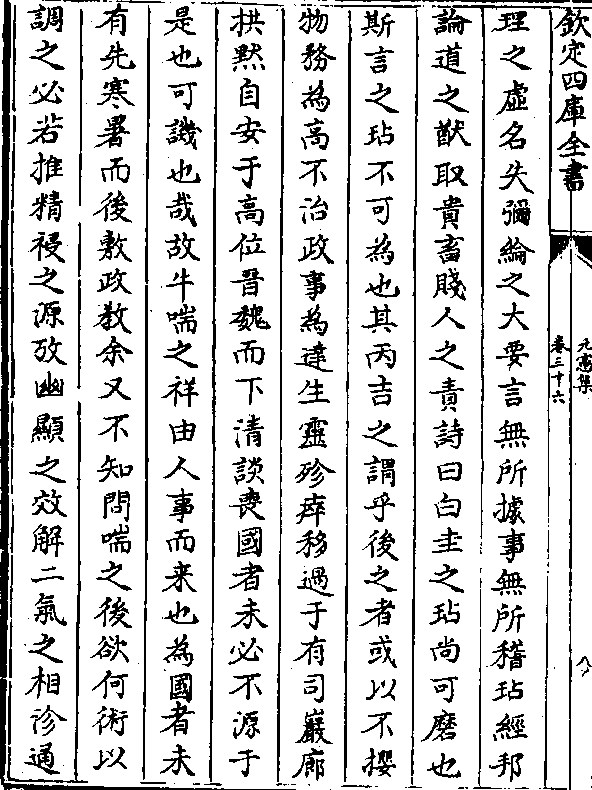 欽定四庫全書
元憲集
卷三十六
八
理之虛名失彌綸之大要言無所據事無所稽玷經邦
論道之猷取貴畜賤人之責詩曰白圭之玷尚可磨也
斯言之玷不可為也其丙吉之謂乎後之者或以不攖
物務為高不治政事為達生靈殄瘁移過于有司巖廊
拱黙自安于高位晉魏而下清談喪國者未必不源于
是也可譏也哉故牛喘之祥由人事而来也為國者未
有先寒暑而後敷政教余又不知問喘之後欲何術以
調之必若推精祲之源攷幽顯之效解二氣之相沴通